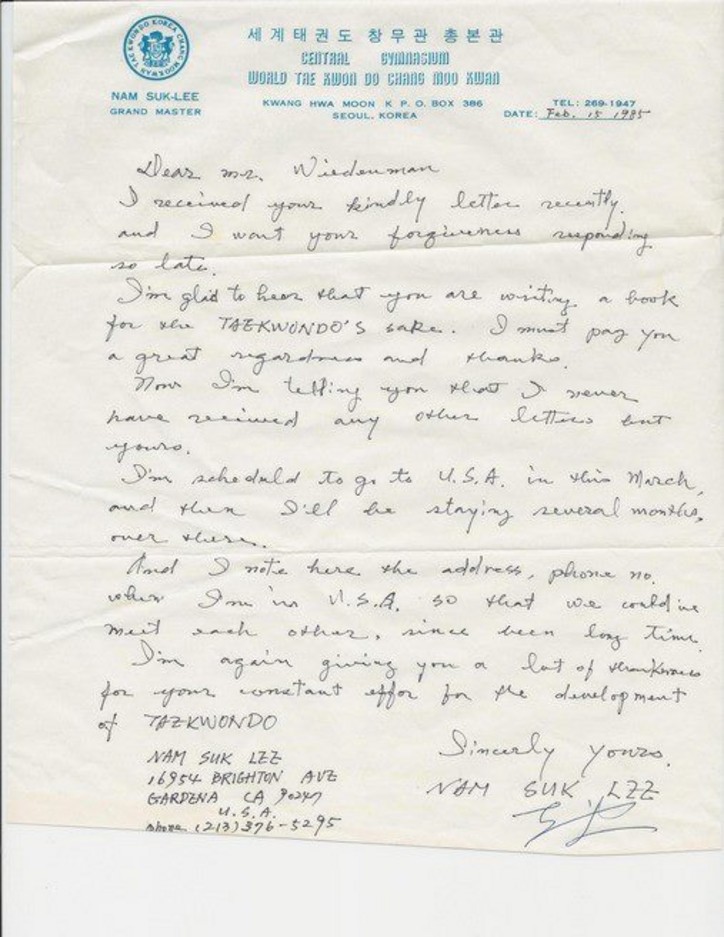 TAE KWON DO KOREA CHANG MOO KWAN
세계태권도 창무관 총본관
CENTRAL GYMNASIUM
WORLD TAE KWON DO CHANG MOO KWAN
NAM SUK-LEE
GRAND MASTER
KWANG HWA MOON K P. O. BOX 386
SEOUL, KOREA
TEL: 269-1947
DATE: Feb. 15 1985
Dear mr. Wiedenman
I received your kindly letter recently.
and I want your forgiveness responding
so late.
I'm glad to hear that you are writing a book
for the TAEKWONDO'S sake. I must pay you
a great regardness and thanks.
Now I'm telling you that I never
have received any other letters but
yours.
I'm scheduld to go to U.S.A. in this March,
and then I'll be staying several months,
over there.
And I note here the address, phone no.
when I'm in U.S.A. so that we could
meet each other, since been long time.
I'm again giving you a lot of thankness
for your constant effor for the development
of TAEKWONDO
Sincerly yours.
NAM SUK LEE
NAM SUK LEE
16954 BRIGHTON AVE
GARDENA CA 90247
U.S.A.
phone (213) 376-5295